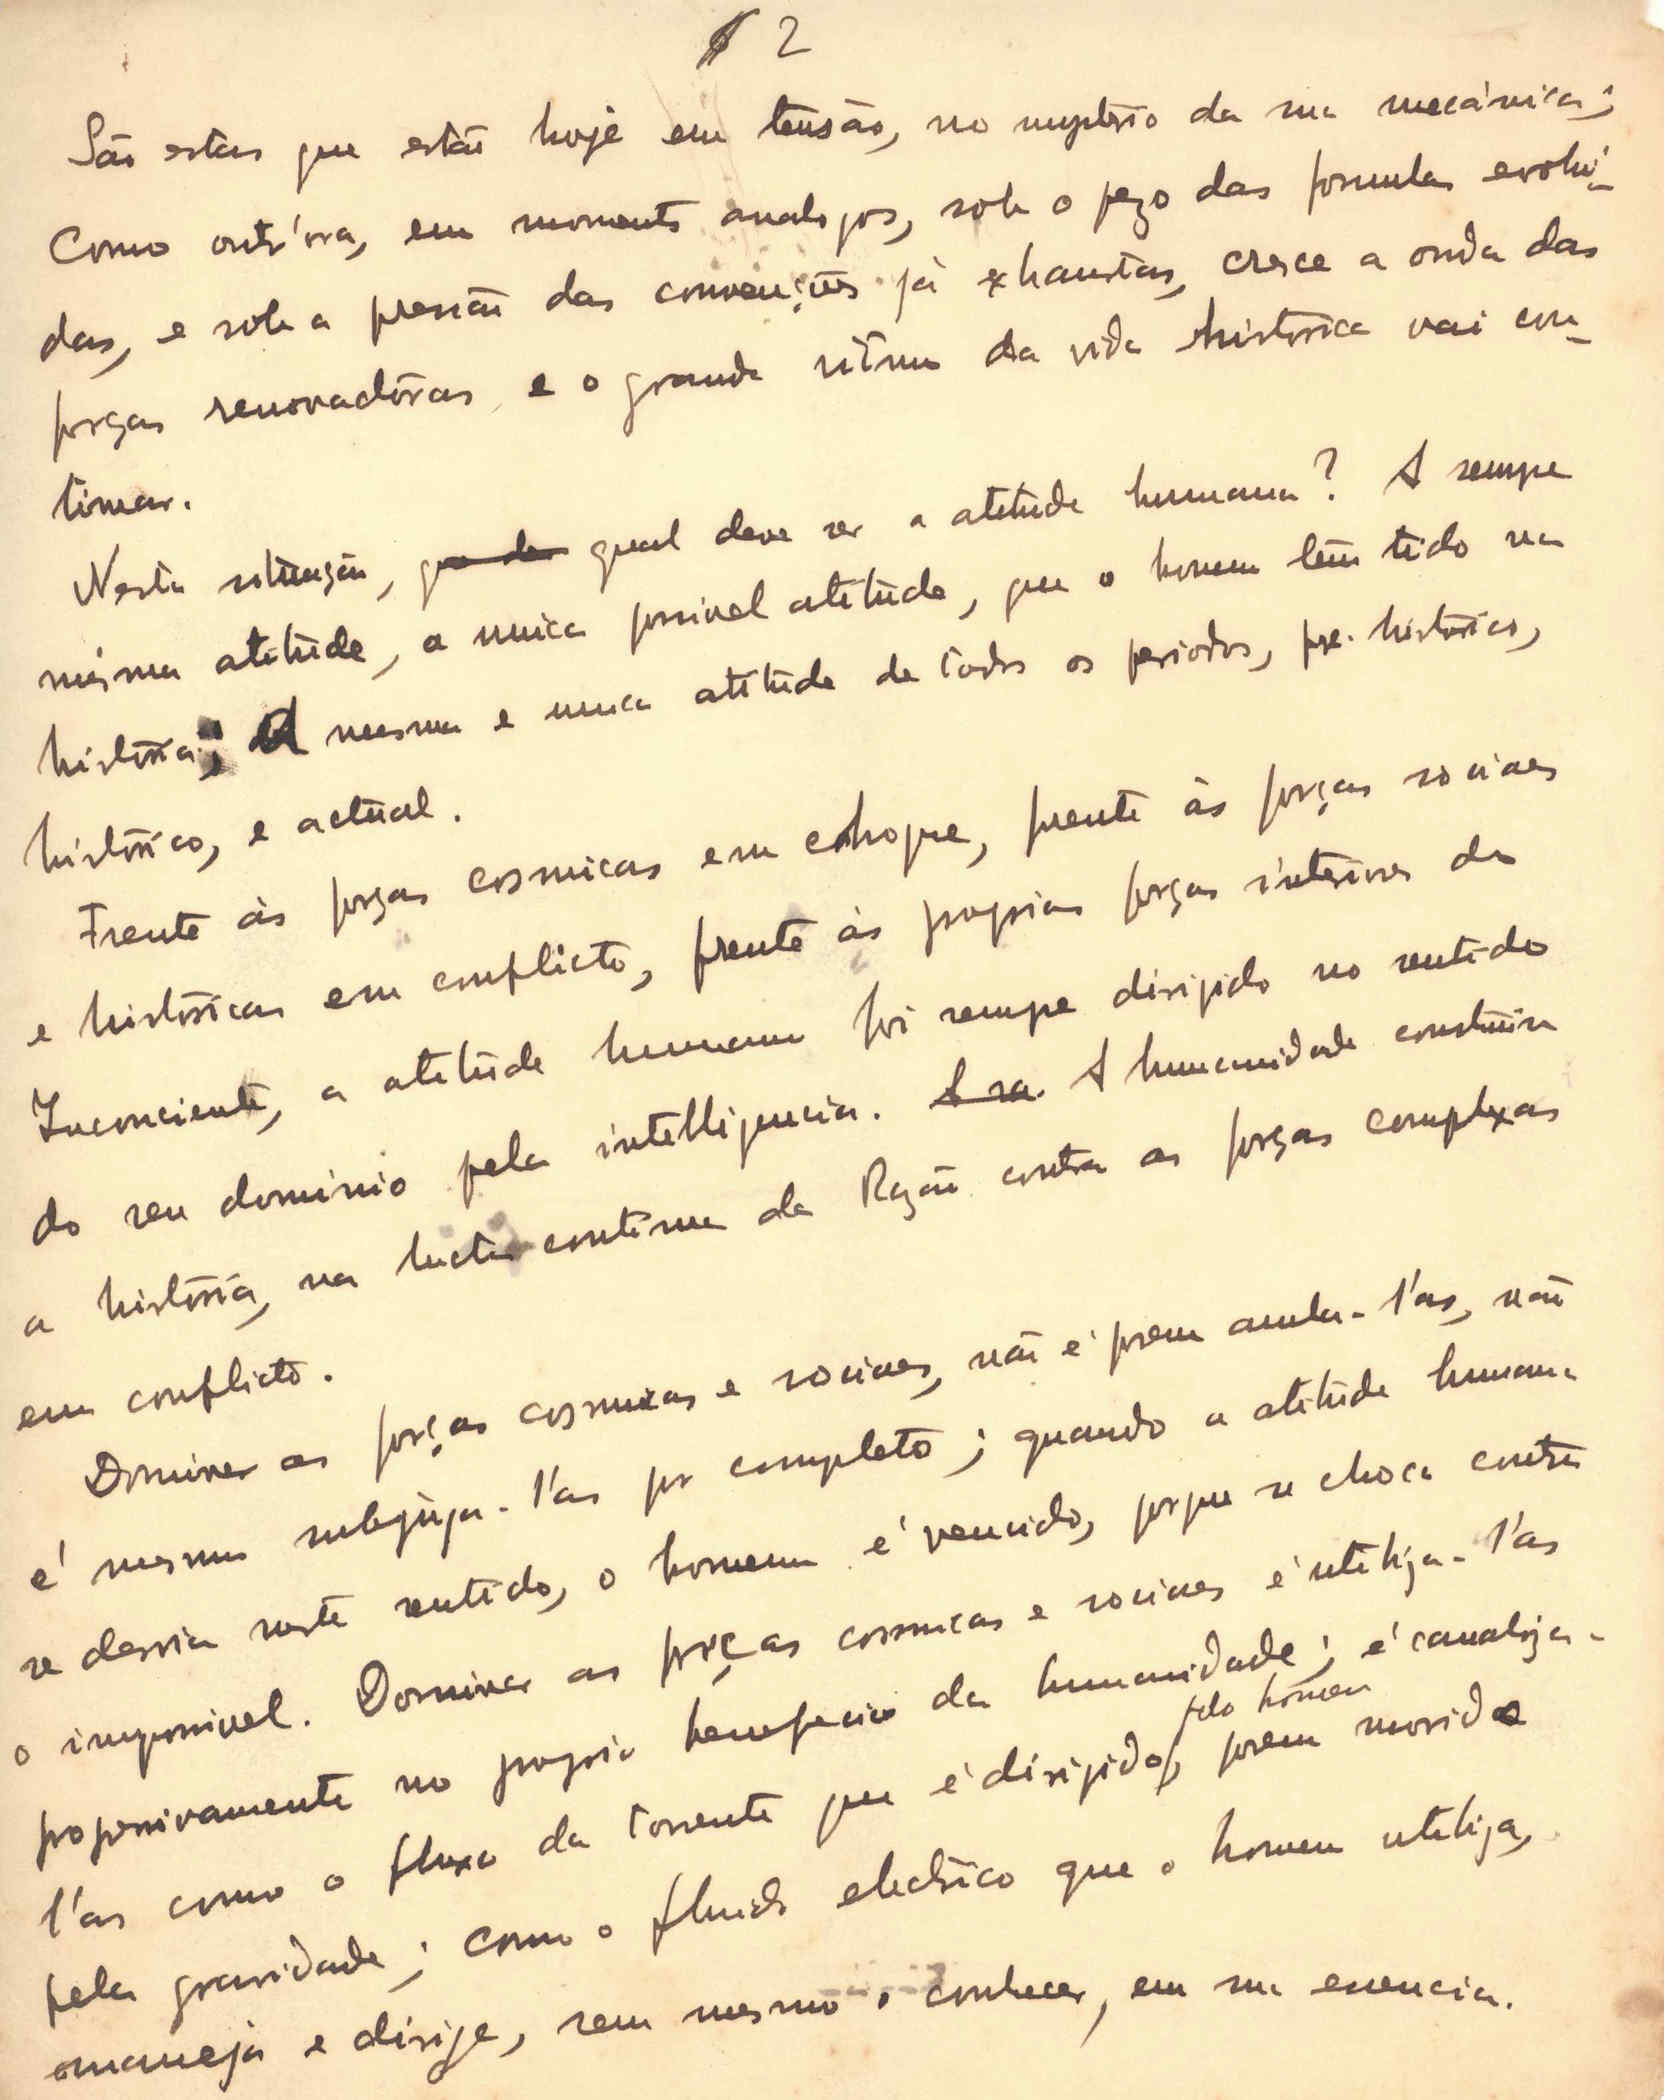 2
São estas que estão hoje em tensão, no mysterio da sua mecánica;
Como outr'ora, em momentos analogos, sob o pezo das formulas evolui-
das, e sob a pressão das convenções já exhaustas, cresce a onda das
forças renovadôras e o grande ritmo da vida historica vai con-
tinuar.
Nesta situação, qual deve ser a atitude humana? A sempre
mesma atitude, a unica possivel atitude, que o homem tem tido na
história; A mesma e unica atitude de todos os periodos, pre-historico,
historico, e actual.
Frente ás forças cosmicas em choque, frente ás forças sociaes
e históricas em conflicto, frente ás proprias forças interiores do
Inconciente, a atitude humana foi sempre dirigida no sentido
do seu dominio pela intelligencia. A ra. A humanidade construiu
a história, na lucta continua da Razão contra as forças complexas
em conflicto.
Dominar as forças cosmicas e sociaes, não é porem anula-l'as, não
é mesmo subjuga-l'as por completo; quando a atitude humana
se desvia neste sentido, o homem é vencido, porque se choca contra
o impossivel. Dominar as forças cosmicas e sociaes é utiliza-l'as
progressivamente no proprio beneficio da humanidade; é canaliza-
l'as como o fluxo da torrente que é dirigido pelo homem, porem movido
pela gravidade; como o fluido electrico que o homem utiliza,
maneja e dirige, sem mesmo o conhecer, em sua essencia.